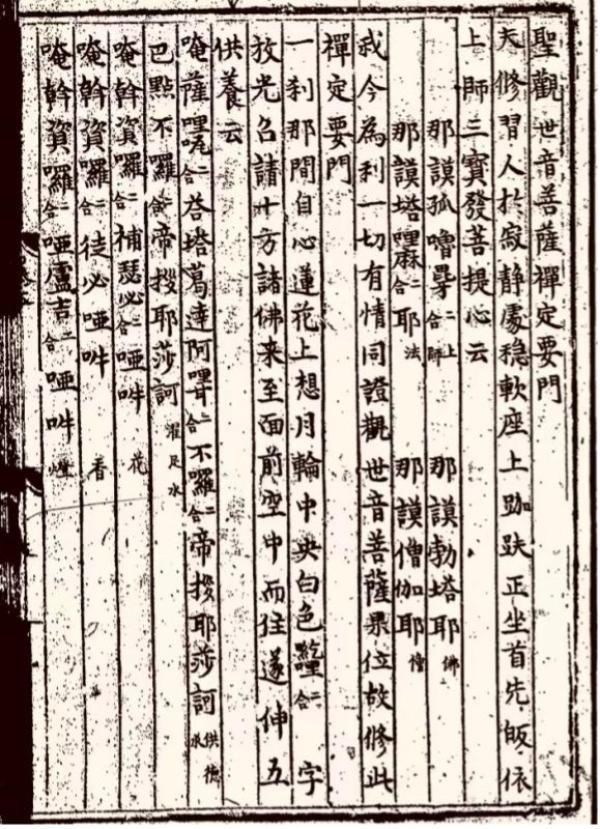 聖觀世音菩薩禪定要門
夫修習人於寂靜處稳軟座上跏趺正坐首先皈依
上師三寶發菩提心云
那謨孤嚕 二合 上師 那謨勃塔耶 佛
那謨塔哩麻 二合 耶 法 那謨僧伽耶 僧
我今為利一切有情同證觀世音菩薩果位故修此
禪定要門
一刹那間自心蓮花上想月輪中央白色 二合 字
放光召請十方諸佛来至面前空中而住遂伸五
供養云
唵薩哩 二合 荅塔葛達阿哩 二合 不囉 二合 帝授耶莎訶 供德水
巴點不囉 二合 帝授耶莎訶 濯足水
唵斡資囉 二合 補瑟必 二合 啞吽 花
唵斡資囉 二合 徒必啞吽 香
唵斡資囉 二合 啞盧吉 二合 啞吽 燈